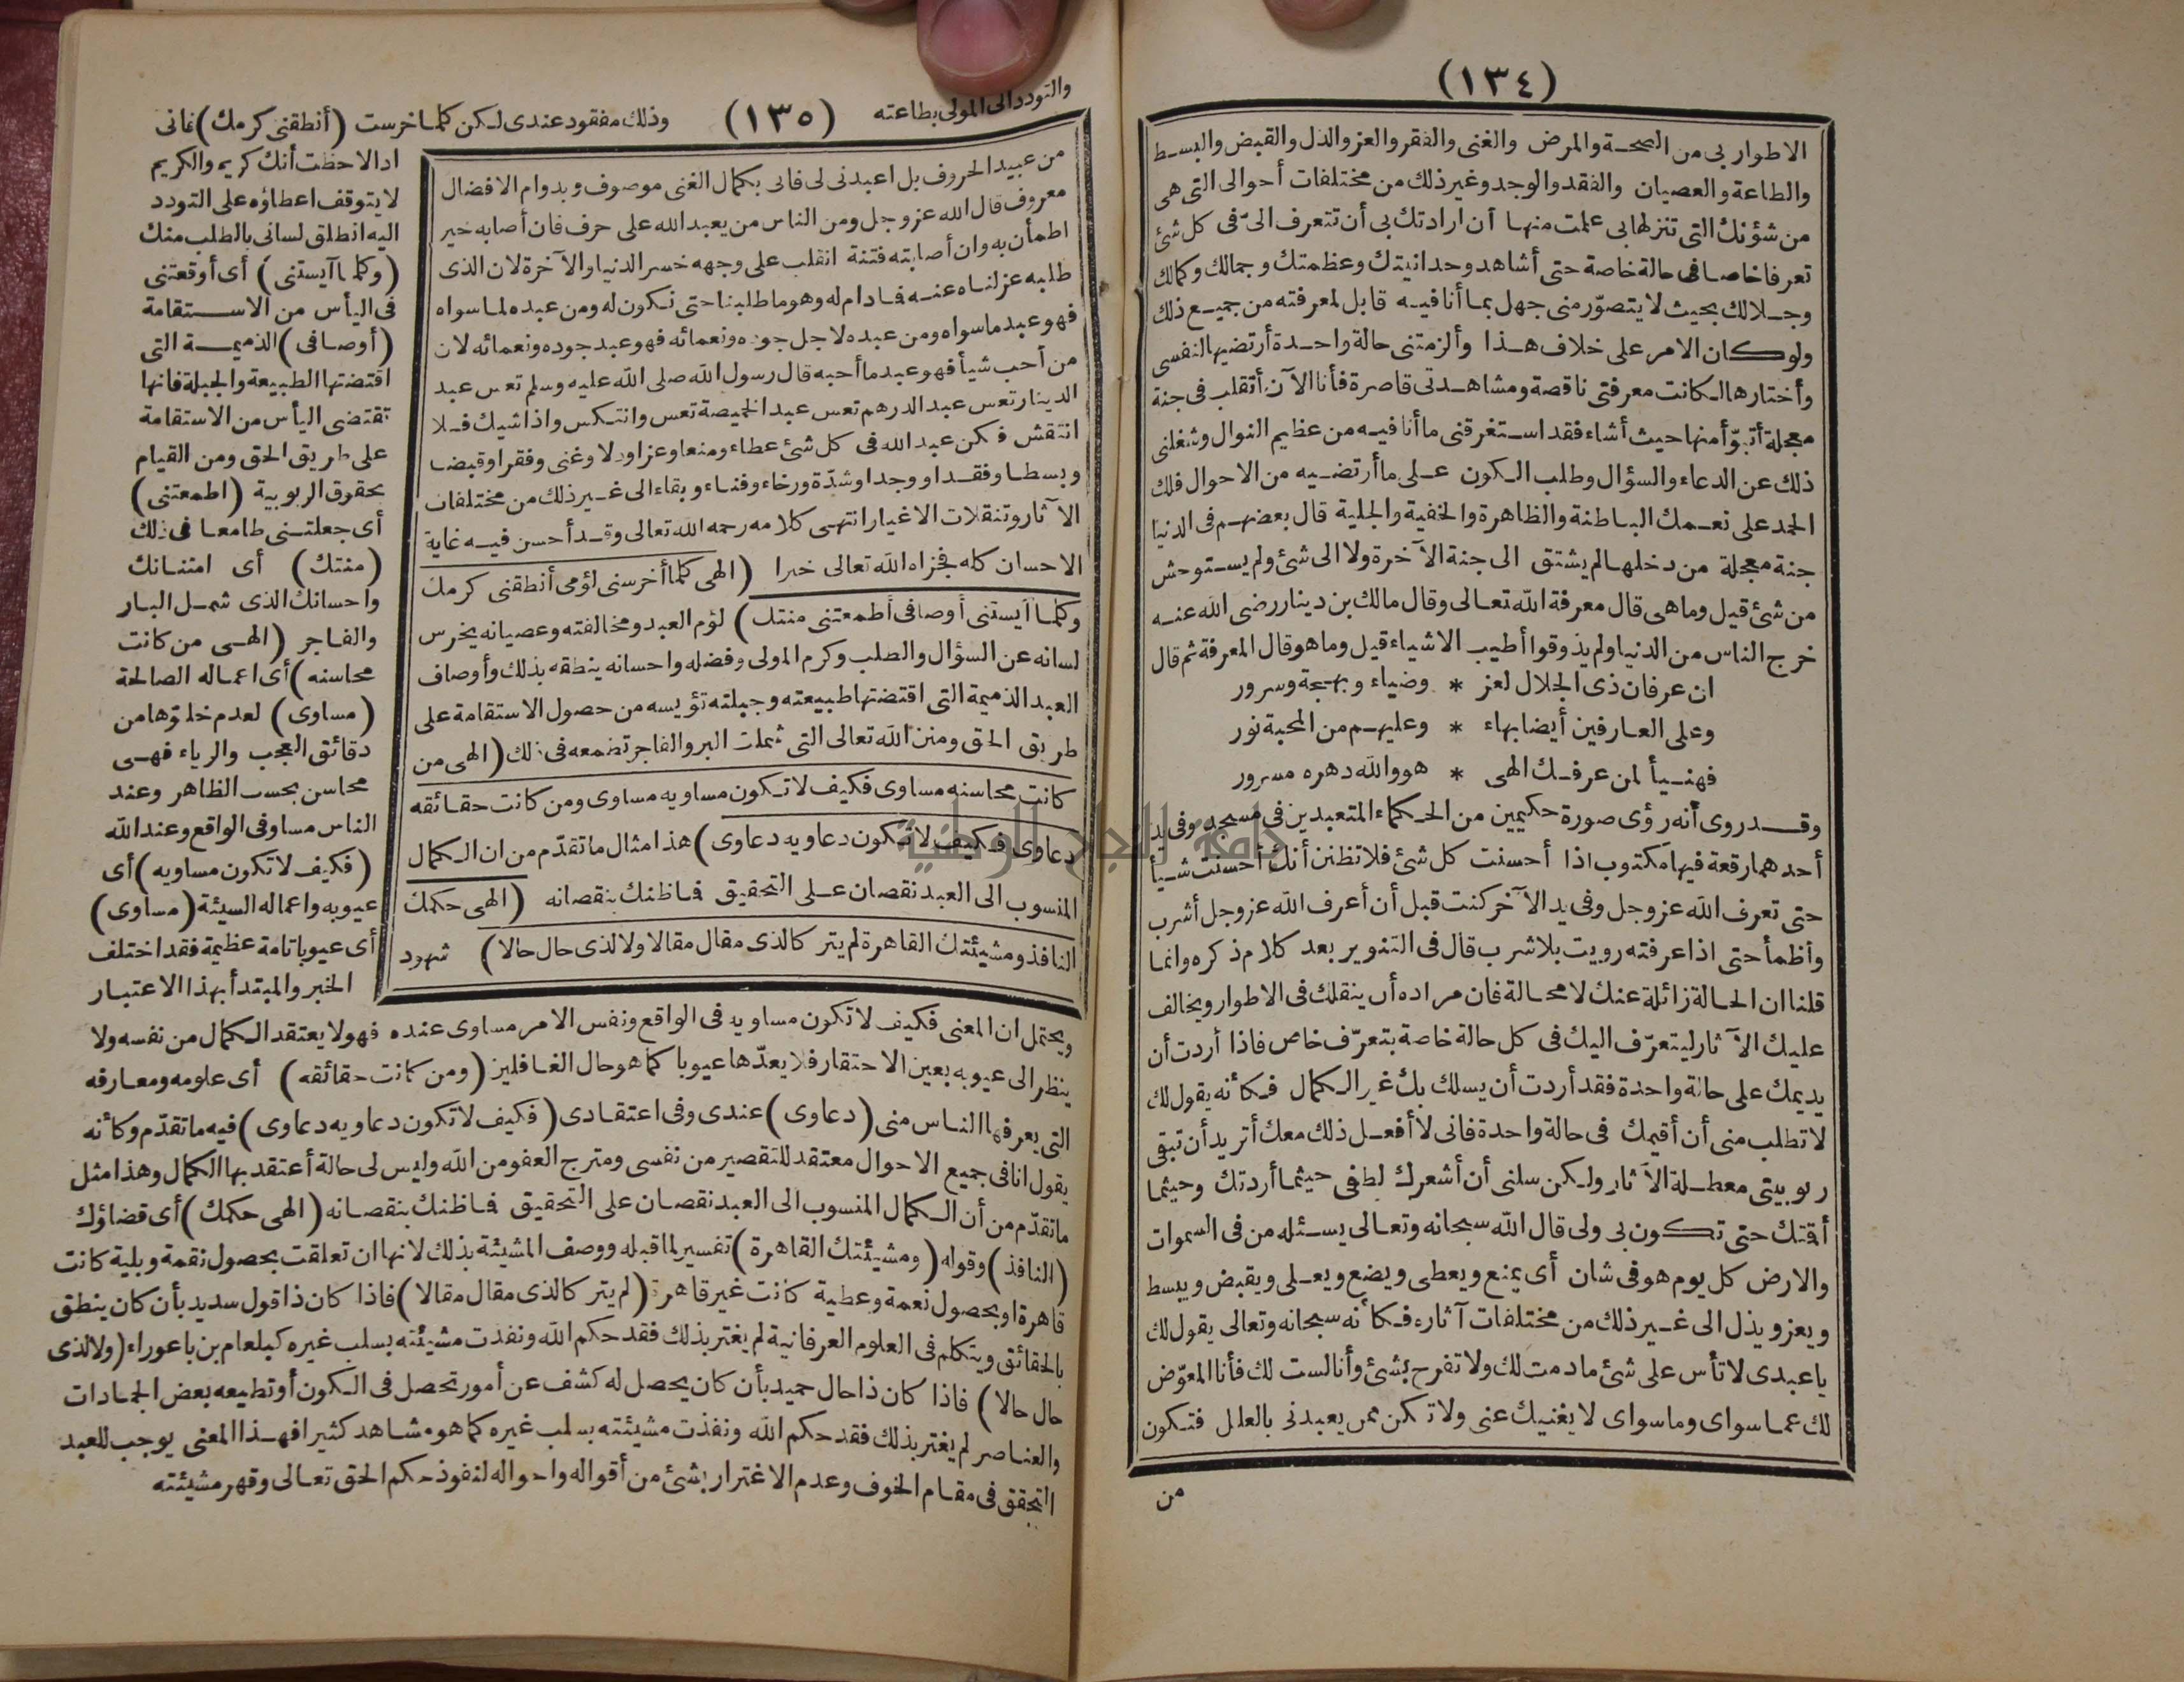 (١٣٤)
الاطوار بى من الصحة والمرض والغنى والفقر والعز والذل والقبض والبسط
والطاعة والعصيان والفقد والوجد وغير ذلك من مختلفات أحوالى التى هى
من شؤنك التى تنزلها بى علمت منها أن ارادتك بى أن تتعرف الىّ فى كل شئ
تعرفا خاصا فى حالة خاصة حتى أشاهد وحدانيتك وعظمتك وجمالك وكمالك
وجلالك بحيث لا يتصوّر منى جهل بما أنا فيه قابل لمعرفته من جميع ذلك
ولو كان الامر على خلاف هذا وألزمتنى حالة واحدة أرتضيها لنفسى
وأختارها لكانت معرفتى ناقصة ومشاهدتى قاصرة فأنا الآن أتقلب فى جنة
معجلة أتبوّأ منها حيث أشاء فقد استغرقنى ما أنا فيه من عظيم النوال وشغلنى
ذلك عن الدعاء والسؤال وطلب الكون على ما أرتضيه من الاحوال فلك
الحمد على نعمك الباطنة والظاهرة والخفية والجلية قال بعضهم فى الدنيا
جنة معجلة من دخلها لم يشتق الى جنة الآخرة ولا الى شئ ولم يستوحش
من شئ قيل وما هى قال معرفة الله تعالى وقال مالك بن دينار رضى الله عنه
خرج الناس من الدنيا ولم يذوقوا أطيب الاشياء قيل وما هو قال المعرفة ثم قال
ان عرفان ذى الجلال لعز * وضياء وبهجة وسرور
وعلى العارفين أيضا بهاء * وعليهم من المحبة نور
فهنيأ لمن عرفك الهى * هو والله دهره مسرور
وقد روى أنه رؤى صورة حكيمين من الحكماء المتعبدين فى مسجد وفى يد
أحدهما رقعة فيها مكتوب اذا أحسنت كل شئ فلا تظنن أنك أحسنت شيأ
حتى تعرف الله عز وجل وفى يد الآخر كنت قبل أن أعرف الله عز وجل أشرب
وأظمأ حتى اذا عرفته رويت بلا شرب قال فى التنوير بعد كلام ذكره وانما
قلنا ان الحالة زائلة عنك لا محالة فان مراده أن ينقلك فى الاطوار ويخالف
عليك الآثار ليتعرّف اليك فى كل حالة خاصة بتعرّف خاص فاذا أردت أن
يديمك على حالة واحدة فقد أردت أن يسلك بك غير الكمال فكأنه يقول لك
لا تطلب منى أن أقيمك فى حالة واحدة فانى لا أفعل ذلك معك أتريد أن تبقى
ربوبيتى معطلة الآثار ولكن سلنى أن أشعرك لطفى حيثما أردتك وحيثما
أقتك حتى تكون بى ولى قال الله سبحانه وتعالى يسئله من فى السموات
والارض كل يوم هو فى شان أى يمنع ويعطى ويضع ويعلى ويقبض ويبسط
ويعز ويذل الى غير ذلك من مختلفات آثاره فكأنه سبحانه وتعالى يقول لك
يا عبدى لا تأس على شئ ما دمت لك ولا تفرح بشئ وأنا لست لك فأنا المعوّض
لك عما سواى وما سواى لا يغنيك عنى ولا تكن ممن يعبدنى بالعلل فتكون
من
والتودد الى المولى بطاعته (١٣٥) وذلك مفقود عندى لكن كلما خرست (أنطقنى كرمك) فانى
من عبيد الحروف بل اعبدنى لى فانى بكمال الغنى موصوف وبدوام الافضال
معروف قال الله عز وجل ومن الناس من يعبد الله على حرف فان أصابه خير
اطمأن به وان أصابته فتنة انقلب على وجهه خسر الدنيا والآخرة لان الذى
طلبه عزلناه عنه فما دام له وهو ما طلبنا حتى نكون له ومن عبده لما سواه
فهو عبد ما سواه ومن عبده لاجل جوده ونعمائه فهو عبد جوده ونعمائه لان
من أحب شيأ فهو عبد ما أحبه قال رسول الله صلى الله عليه وسلم تعس عبد
الدينار تعس عبد الدرهم تعس عبد الخميصة تعس وانتكس واذا شيك فلا
انتقش فكن عبد الله فى كل شئ عطاء ومنعا وعزا وذلا وغنى وفقرا وقبضا
وبسطا وفقدا ووجدا وشدّة ورخاء وفناء وبقاء الى غير ذلك من مختلفات
الآثار وتنقلات الاغيار انتهى كلامه رحمه الله تعالى وقد أحسن فيه غاية
الاحسان كله فجزاه الله تعالى خيرا (الهى كلما أخرسنى لؤمى أنطقنى كرمك
وكلما آيستنى أوصافى أطمعتنى منتك) لؤم العبد ومخالفته وعصيانه يخرس
لسانه عن السؤال والطلب وكرم المولى وفضله واحسانه ينطقه بذلك وأوصاف
العبد الذميمة التى اقتضتها طبيعته وجبلته تؤيسه من حصول الاستقامة على
طريق الحق ومنن الله تعالى التى شملت البر والفاجر تضمعه فى ذلك (الهى من
كانت محاسنه مساوى فكيف لا تكون مساويه مساوى ومن كانت حقائقه
دعاوى فكيف لا تكون دعاويه دعاوى) هذا مثال ما تقدّم من ان الكمال
المنسوب الى العبد نقصان على التحقيق فما ظنك بنقصانه (الهى حكمك
النافذ ومشيئتك القاهرة لم يتركا لذى مقال مقالا ولا لذى حال حالا) شهود
اذا لاحظت أنك كريم والكريم
لا يتوقف اعطاؤه على التودد
اليه انطلق لسانى بالطلب منك
(وكلما آيستنى) أى أوقعتنى
فى اليأس من الاستقامة
(أوصافى) الذميمة التى
اقتضتها الطبيعة والجبلة فانها
تقتضى اليأس من الاستقامة
على طريق الحق ومن القيام
بحقوق الربوبية (اطمعتنى)
أى جعلتنى طامعا فى ذلك
(منتك) أى امتنانك
واحسانك الذى شمل البار
والفاجر (الهى من كانت
محاسنه) أى اعماله الصالحة
(مساوى) لعدم خلوّها من
دقائق العجب والرياء فهى
محاسن بحسب الظاهر وعند
الناس مساو فى الواقع وعند الله
(فكيف لا تكون مساويه) أى
عيوبه واعماله السيئة (مساوى)
أى عيوبا تامة عظيمة فقد اختلف
الخبر والمبتدأ بهذا الاعتبار
ويحتمل ان المعنى فكيف لا تكون مساويه فى الواقع ونفس الامر مساوى عنده فهو لا يعتقد الكمال من نفسه ولا
ينظر الى عيوبه بعين الاحتقار فلا يعدّها عيوبا كما هو حال الغافلين (ومن كانت حقائقه) أى علومه ومعارفه
التى يعرفها الناس منى (دعاوى) عندى وفى اعتقادى (فكيف لا تكون دعاويه دعاوى) فيه ما تقدّم وكأنه
يقول انا فى جميع الاحوال معتقد للتقصير من نفسى ومترج العفو من الله وليس لى حالة أعتقد بها الكمال وهذا مثل
ما تقدّم من أن الكمال المنسوب الى العبد نقصان على التحقيق فما ظنك بنقصانه (الهى حكمك) أى قضاؤك
(النافذ) وقوله (ومشيئتك القاهرة) تفسير لما قبله ووصف المشيئة بذلك لانها ان تعلقت بحصول نقمة وبلية كانت
قاهرة او بحصول نعمة وعطية كانت غير قاهرة (لم يتركا لذى مقال مقالا) فاذا كان ذا قول سديد بأن كان ينطق
بالحقائق ويتكلم فى العلوم العرفانية لم يغتر بذلك فقد حكم الله ونفذت مشيئته بسلب غيره كبلعام بن باعوراء (ولا لذى
حال حالا) فاذا كان ذا حال حميد بأن كان يحصل له كشف عن أمور تحصل فى الكون أو تطيعه بعض الجمادات
والعناصر لم يغتر بذلك فقد حكم الله ونفذت مشيئته بسلب غيره كما هو مشاهد كثيرا فهذا المعنى يوجب للعبد
التحقق فى مقام الخوف وعدم الاغترار بشئ من أقواله واحواله لنفوذ حكم الحق تعالى وقهر مشيئته
جامعة النجاح الوطنية